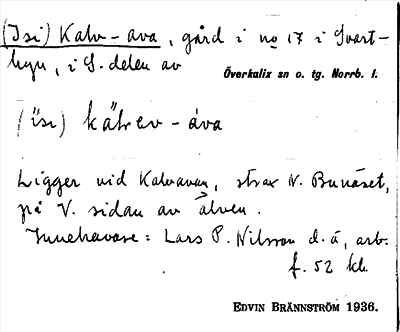 (Isi) Kalv-ava, gård i no 17 i Svart-
byn, i S. delen av
Överkalix sn o. tg. Norrb. l.
Ligger vid Kalvavan, strax N. Bunäset,
på V. sidan av älven.
Innehavare: Lars P. Nilsson d. ä, arb.
f. 52 kl.
EDVIN BRÄNNSTRÖM 1936.